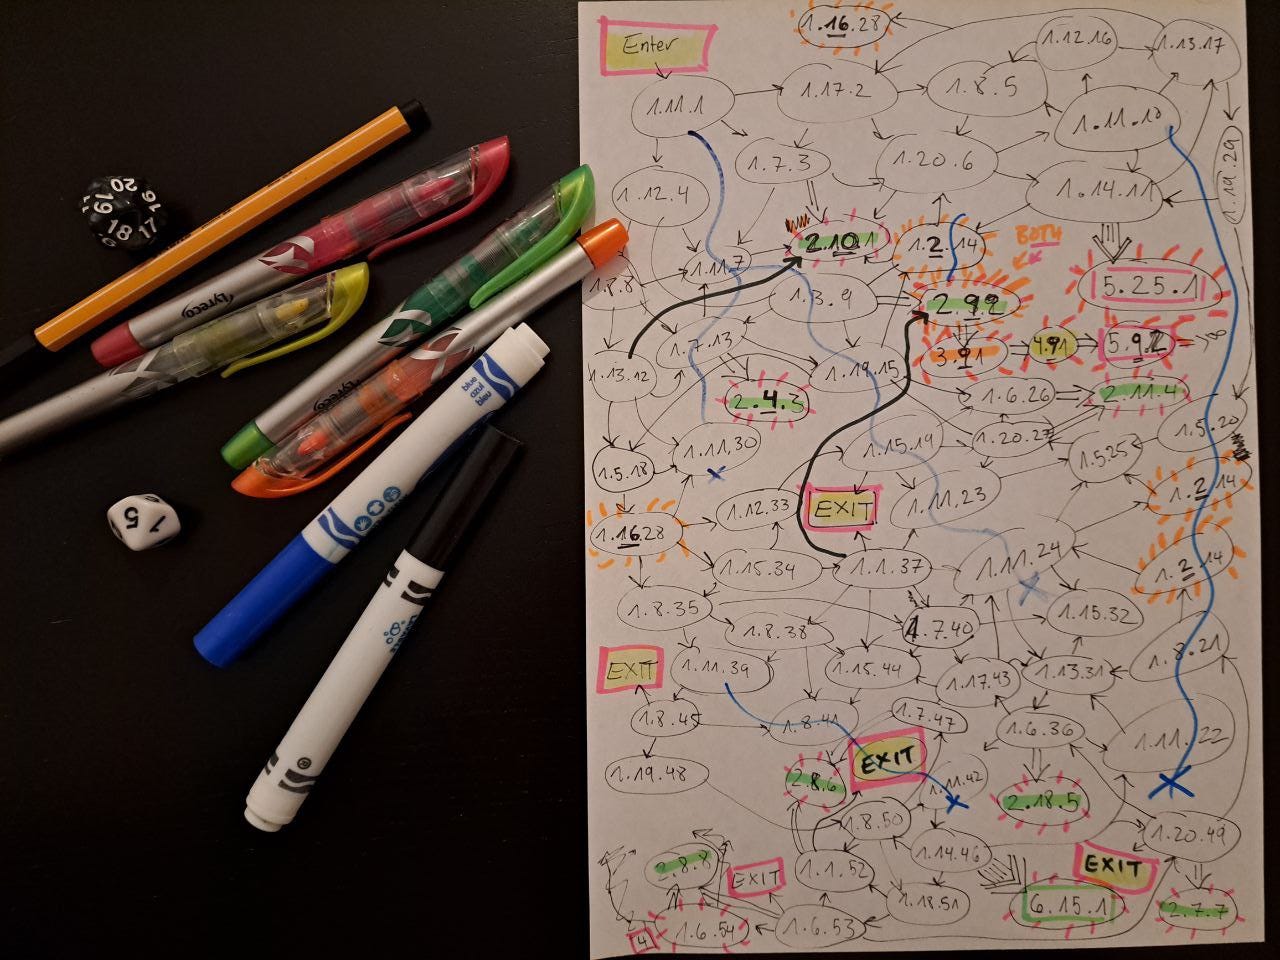 1.16.28
Enter
1.12.16
1.13.17
1.11.1
1.17.2
1.8.5
1.11.10
1.7.3
1.20.6
1.19.29
1.12.4
1.14.11
20
19
18
17
16
2.10.1
1.2.14
BOTH
1.11.7
1.8.8
1.3.9
2.9.2
5.25.1
Lyreco
1.7.13
3.9.1
4.9.1
5.9.2
1.13.12
1.19.15
2.4.3
1.6.26
2.11.4
blue
azul
bleu
1.5.20
1.11.30
1.15.19
1.20.27
1.5.25
1.5.18
1.2.14
1.12.33
EXIT
1.11.23
5
1
1.16.28
1.15.34
1.1.37
1.11.24
1.2.14
1.8.35
1.8.38
1.7.40
1.15.32
1.8.21
EXIT
1.11.39
1.15.44
1.17.43
1.13.31
1.8.45
1.8.41
1.7.47
1.6.36
1.11.22
EXIT
1.19.48
2.8.6
1.11.42
2.18.5
1.8.50
1.20.49
1.14.46
2.8.8
EXIT
1.1.52
EXIT
1.18.51
6.15.1
2.7.7
4
1.6.54
1.6.53